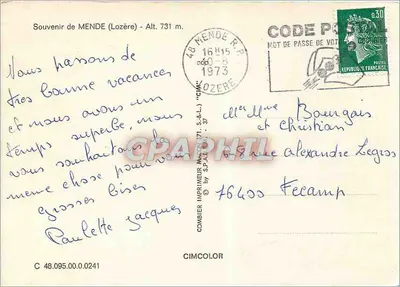 Souvenir de MENDE (Lozère) - Alt. 731 m.
Nous passons de
très bonne vacances
et nous avons un
temps superbe, nous
vous souhaitons la
même chose pour vous
grosses bises
Paulette Jacques
C 48.095.00.0.0241
CIMCOLOR
48 MENDE R.P.
16H15
-8
1973
LOZERE
CODE PO
MOT DE PASSE DE VOT
0,30
REPUBLIQUE FRANÇAISE
POSTES
CPAPHIL
COMBIER IMPRIMEUR MACON
"CIM"
© by S.P.A.D.E.M.
Mr et Mme Bourgais
et Christian
rue Alexandre Legros
76400 Fecamp